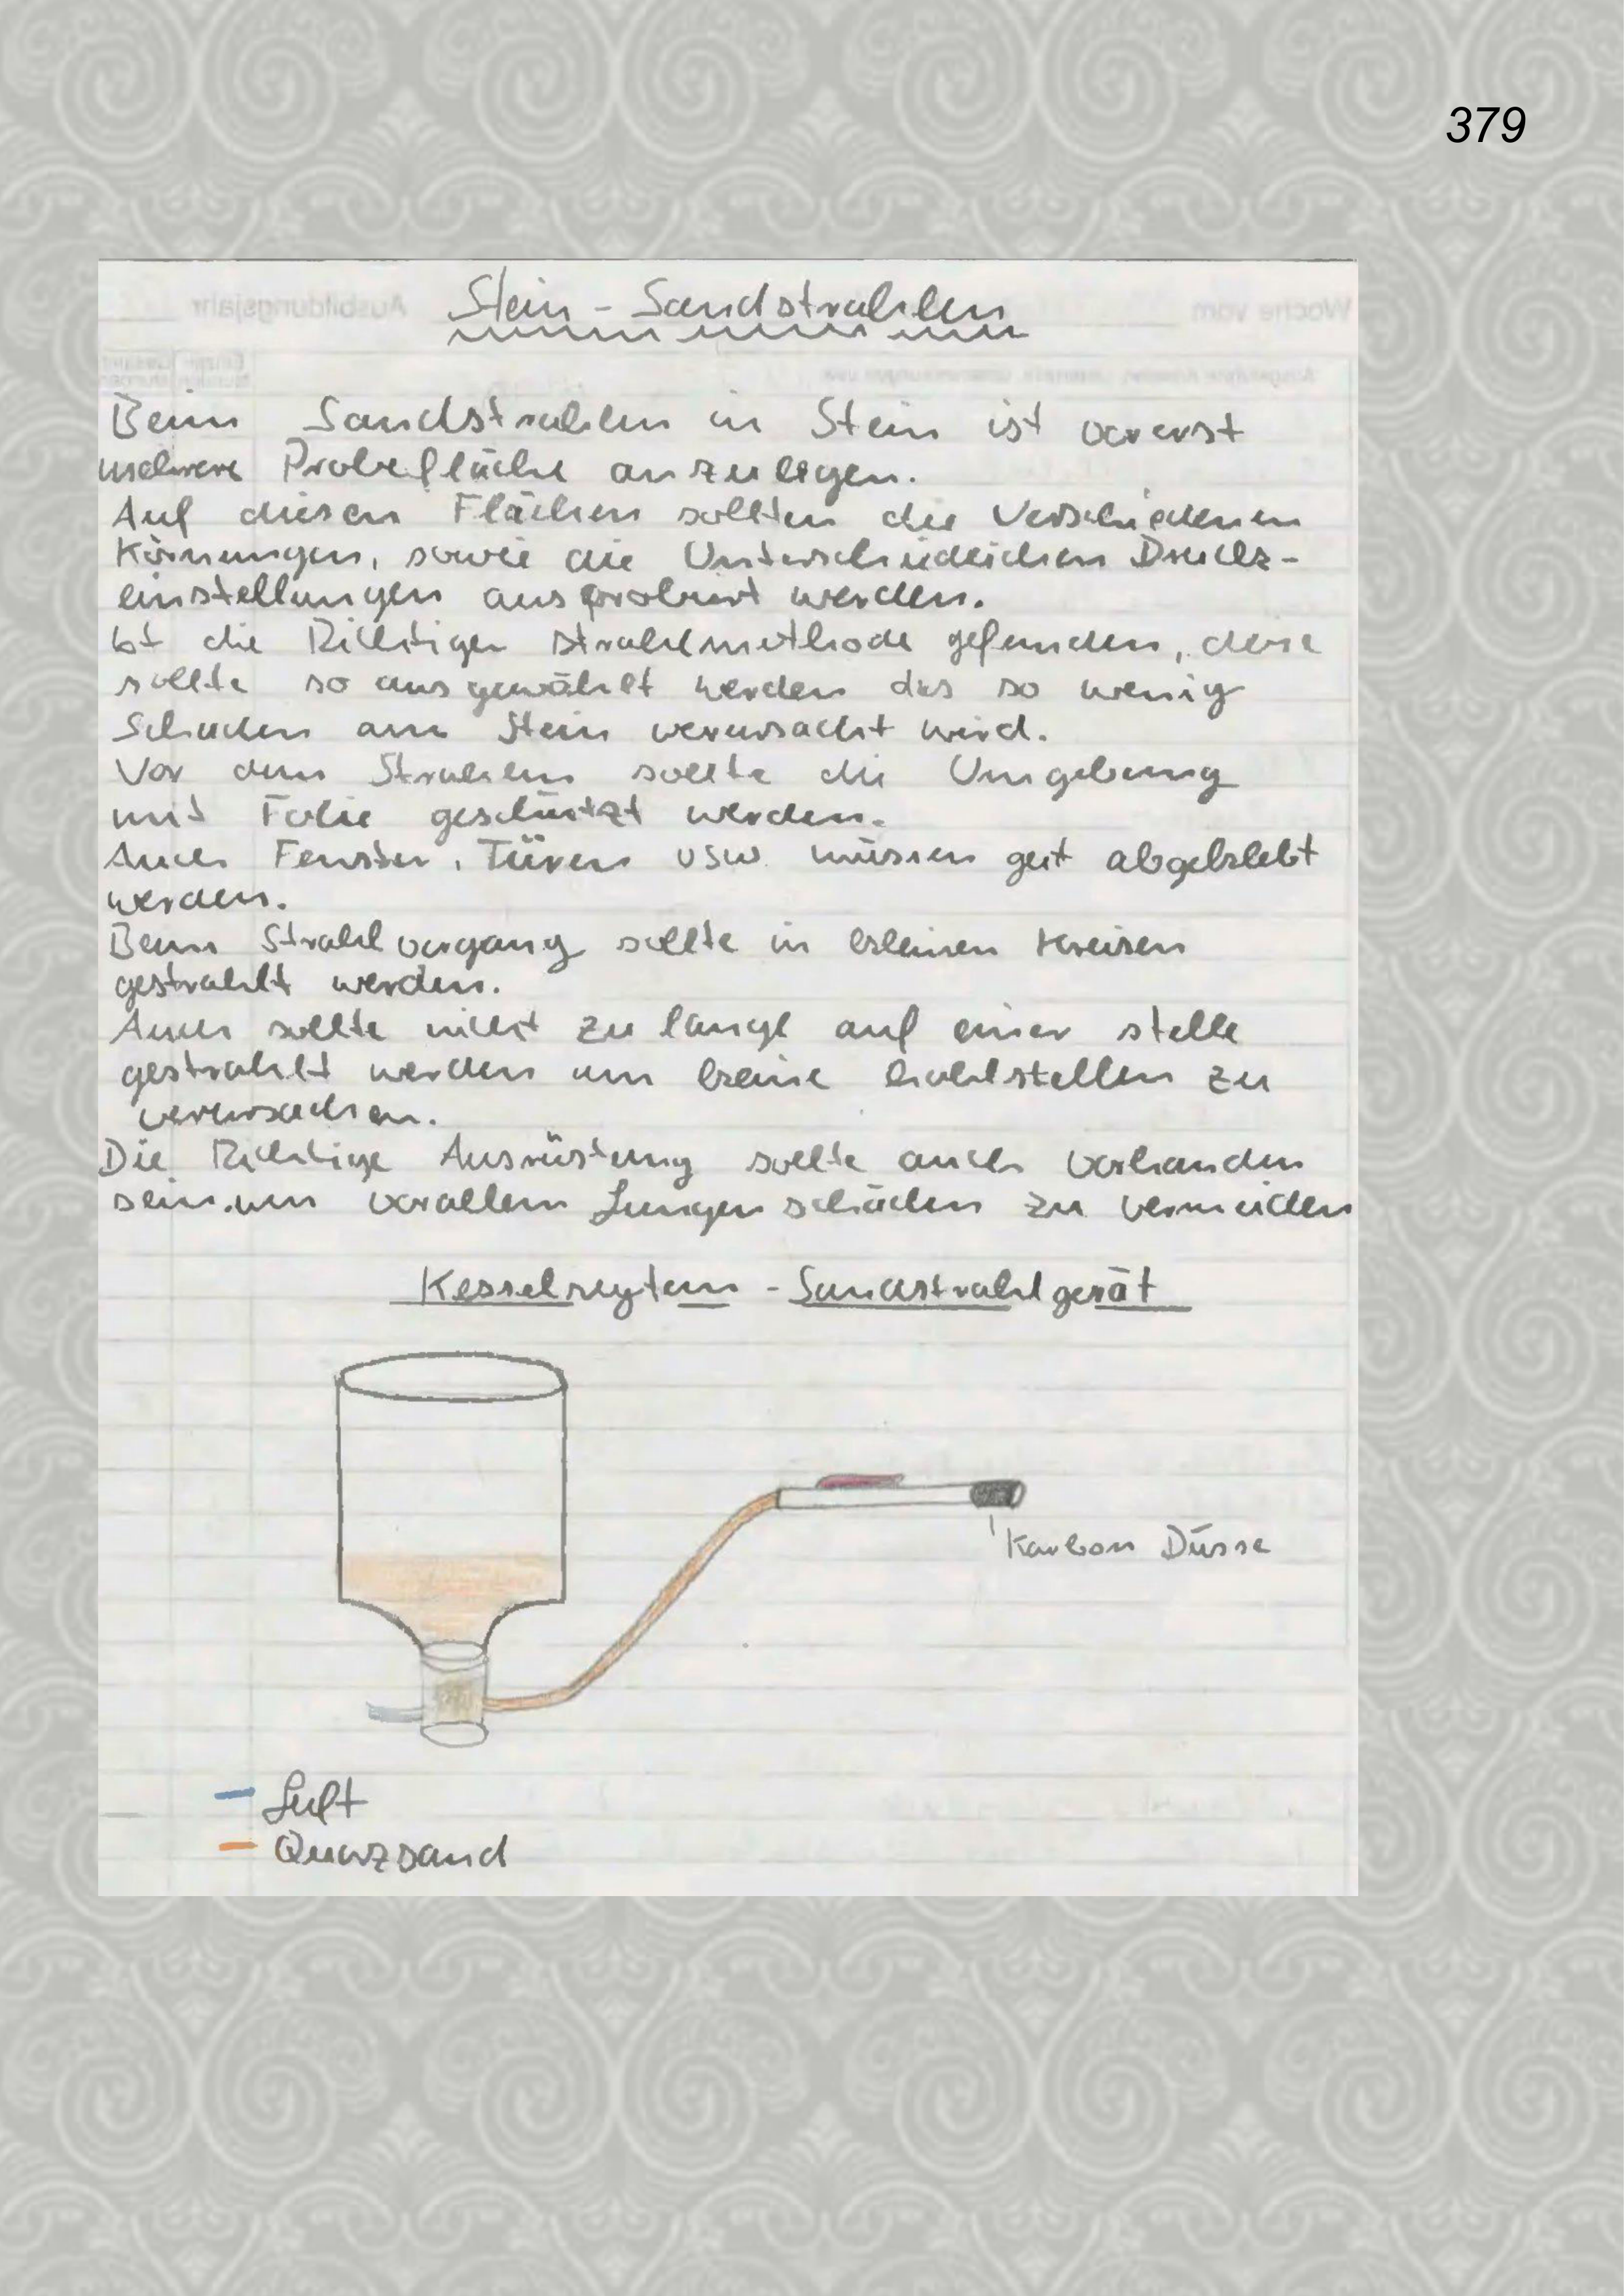 379
Stein - Sandstrahlen
Beim Sandstrahlen in Stein ist vorerst
mehrere Probefläche anzulegen.
Auf diesen Flächen sollten die Verschiedenen
Körnungen, sowie die Unterschiedlichen Druck-
einstellungen ausprobiert werden.
Ist die Richtige strahlmethode gefunden, diese
sollte so ausgewählt werden das so wenig
Schaden am Stein verursacht wird.
Vor dem Strahlen sollte die Umgebung
mit Folie geschützt werden.
Auch Fenster, Türen usw. müssen gut abgeklebt
werden.
Beim Strahlvorgang sollte in kleinen Kreisen
gestrahlt werden.
Auch sollte nicht zu lange auf einer stelle
gestrahlt werden um keine hohlstellen zu
verursachen.
Die Richtige Ausrüstung sollte auch vorhanden
sein. um vorallem Lungenschäden zu vermeiden
Kesselsystem - Sandstrahlgerät
Karbon Düsse
Luft
Quarzsand